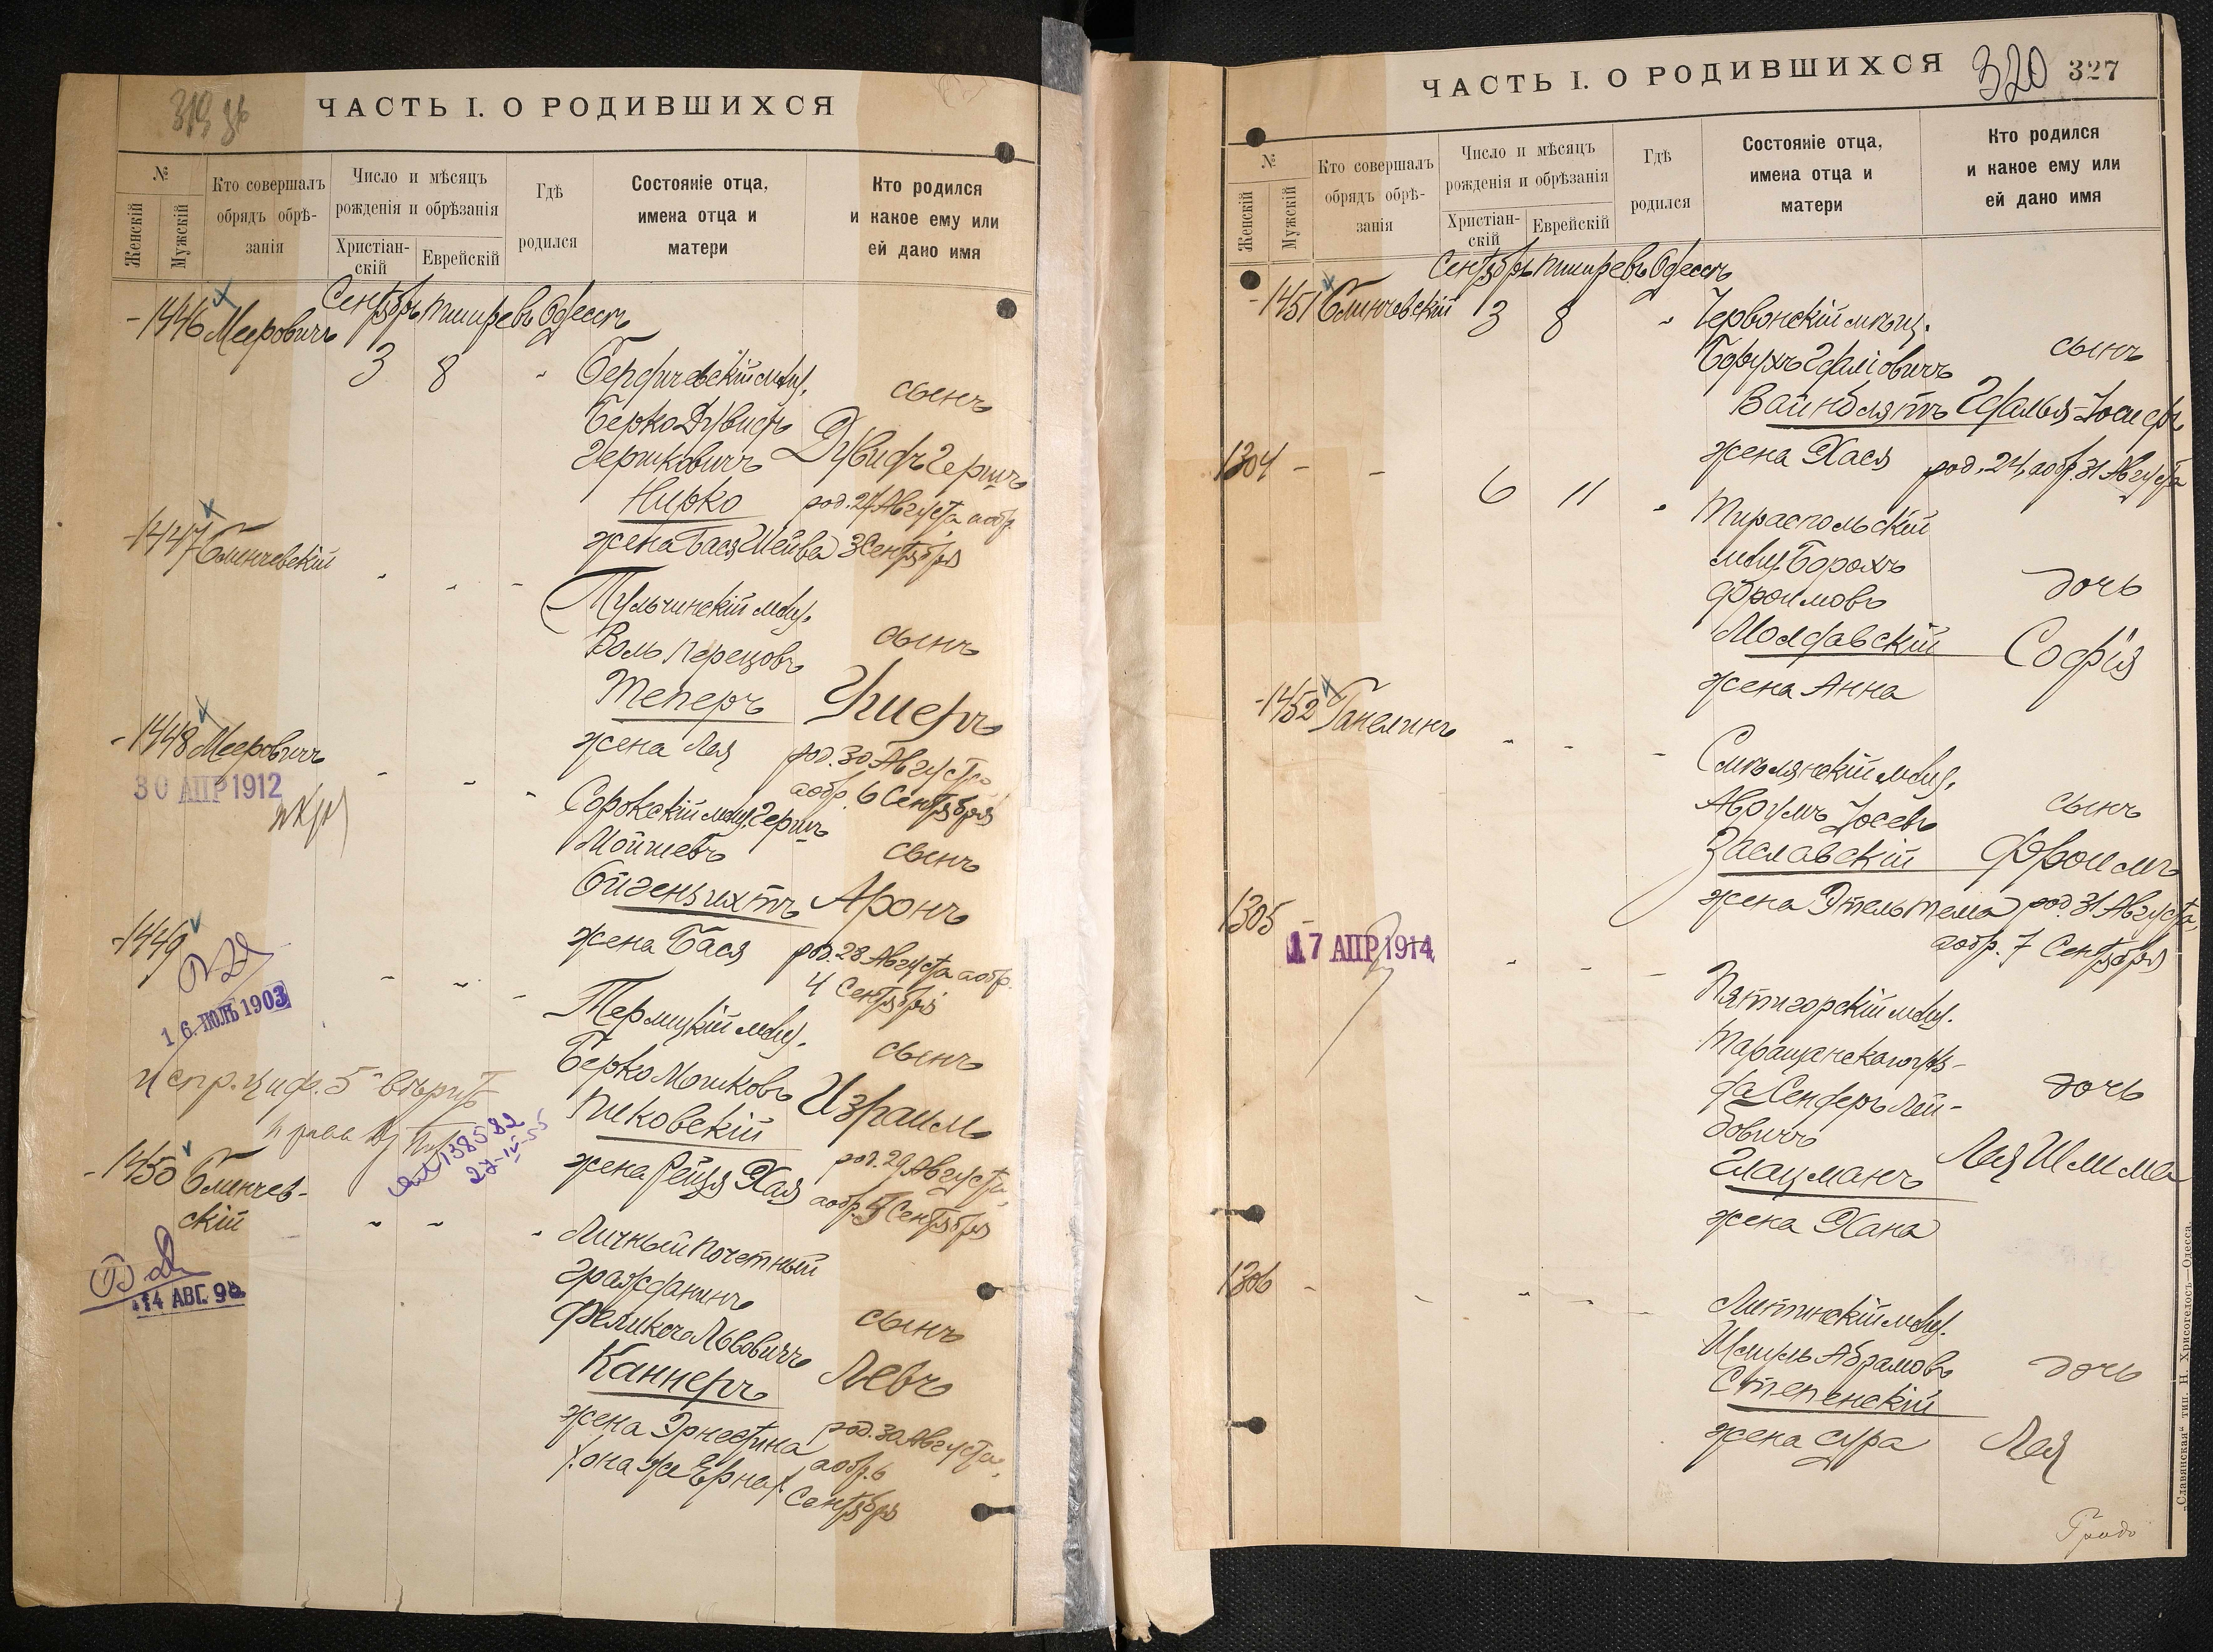 ЧАСТЬ I. О РОДИВШИХСЯ
№
Женскій
Мужскій
Кто совершалъ
обрядъ обрѣ-
занія
Число и мѣсяцъ
рожденія и обрѣзанія
Христіан-
скій
Еврейскій
Гдѣ
родился
Состояніе отца,
имена отца и
матери
Кто родился
и какое ему или
ей дано имя
Сентябрь Тишри въ Одессѣ
1446 Мееровичъ
3 8
Бердичевскій мѣщ.
Берко Дувидъ
Гершковичъ
Нирко
жена Бася Шейва
сынъ
Дувидъ Гершъ
род. 27 Августа а обр.
3 Сентября
1447 Блинчевскій
Тульчинскій мѣщ.
Воль Перецовъ
Теперъ
жена Лея
сынъ
Ушеръ
род. 30 Августа
а обр. 6 Сентября
1448 Мееровичъ
30 АПР 1912
Сорокскій мѣщ. Гершъ
Мойшевъ
Ойгенлихтъ
жена Бася
сынъ
Аронъ
род. 28 Августа а обр.
4 Сентября
1449
16. ИЮЛЬ 1903
испр. циф. 5 вѣрить
138582
27-IV-55
Берко Мошковъ
Пиковскій
жена Рейзя Хая
сынъ
Израиль
род. 29 Августа,
а обр. 5 Сентября
1450 Блинчев-
скій
14 АВГ. 9
Личный почетный
гражданинъ
Феликсъ Львовичъ
Каннеръ
жена Эрнестина
она же Ерна
сынъ
Левъ
род. 30 Августа,
а обр. 6
Сентября
ЧАСТЬ I. О РОДИВШИХСЯ
320
327
№
Женскій
Мужскій
Кто совершалъ
обрядъ обрѣ-
занія
Число и мѣсяцъ
рожденія и обрѣзанія
Христіан-
скій
Еврейскій
Гдѣ
родился
Состояніе отца,
имена отца и
матери
Кто родился
и какое ему или
ей дано имя
Сентябрь Тишри въ Одессѣ
1451 Блинчевскій
3 8
Червонскій мѣщ.
Борухъ Гдаліовичъ
Вайнблятъ
жена Хася
сынъ
Гдалья-Іосифъ
род. 24, а обр. 31 Августа
1304
6 11
Тираспольскій
мѣщ. Борохъ
Фроимовъ
Молдавскій
жена Анна
дочь
Софія
1452 Ганелинъ
Смѣлянскій мѣщ.
Аврумъ Іосевъ
Заславскій
жена Этель Тема
сынъ
Фроимъ
род. 31 Августа,
а обр. 7 Сентября
1305
17 АПР 1914
Пятигорскій мѣщ.
Таращанскаго уѣз-
да Сендеръ Лей-
бовичъ
Глацманъ
жена Хана
дочь
Лея Шлима
1306
Литинскій мѣщ.
Шмуль Абрамовъ
Степенскій
жена Сура
дочь
Лея
„Славянская“ тип. Н. Хрисогелосъ—Одесса.